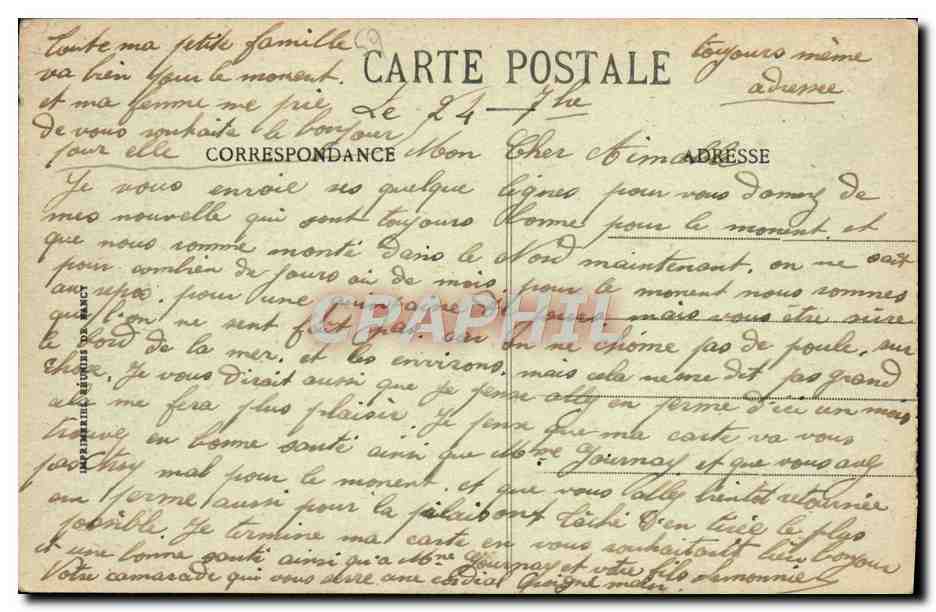 Toute ma petite famille
va bien pour le moment.
et ma femme me prie
de vous souhaite le bonjour
pour elle
CARTE POSTALE
toujours même
adresse
Le 24 — 7bre
CORRESPONDANCE
ADRESSE
Mon Cher
Je vous envoie ses quelque lignes pour vous donnez de
mes nouvelle qui sont toujours bonne pour le moment. et
que nous somme monté dans le Nord maintenant. on ne sait
pour combien de jours ou de mois. pour le moment nous sommes
au repos. pour une quinzaine de jours. mais vous etre sûre
que l'on ne sent fait pas. car on ne chôme pas de poule. sur
le bord de la mer. et les environs. mais cela ne me dit pas grand
chose. Je vous dirait aussi que je pense allez en ferme d'ici un mois
cela me fera plus plaisir. Je pense que ma carte va vous
trouvez en bonne santé ainsi que Mme Gournay et que vous avez
pas trop mal pour le moment. et que vous allez bientôt retournée
en ferme aussi pour la tâché d'en tirée le plus
possible. Je termine ma carte en vous souhaitant bien bonjour
et une bonne santé ainsi qu'a Mme Gournay et votre fils
Votre camarade qui vous serre une cordial
IMPRIMERIES RÉUNIES DE NANCY
CPAPHIL